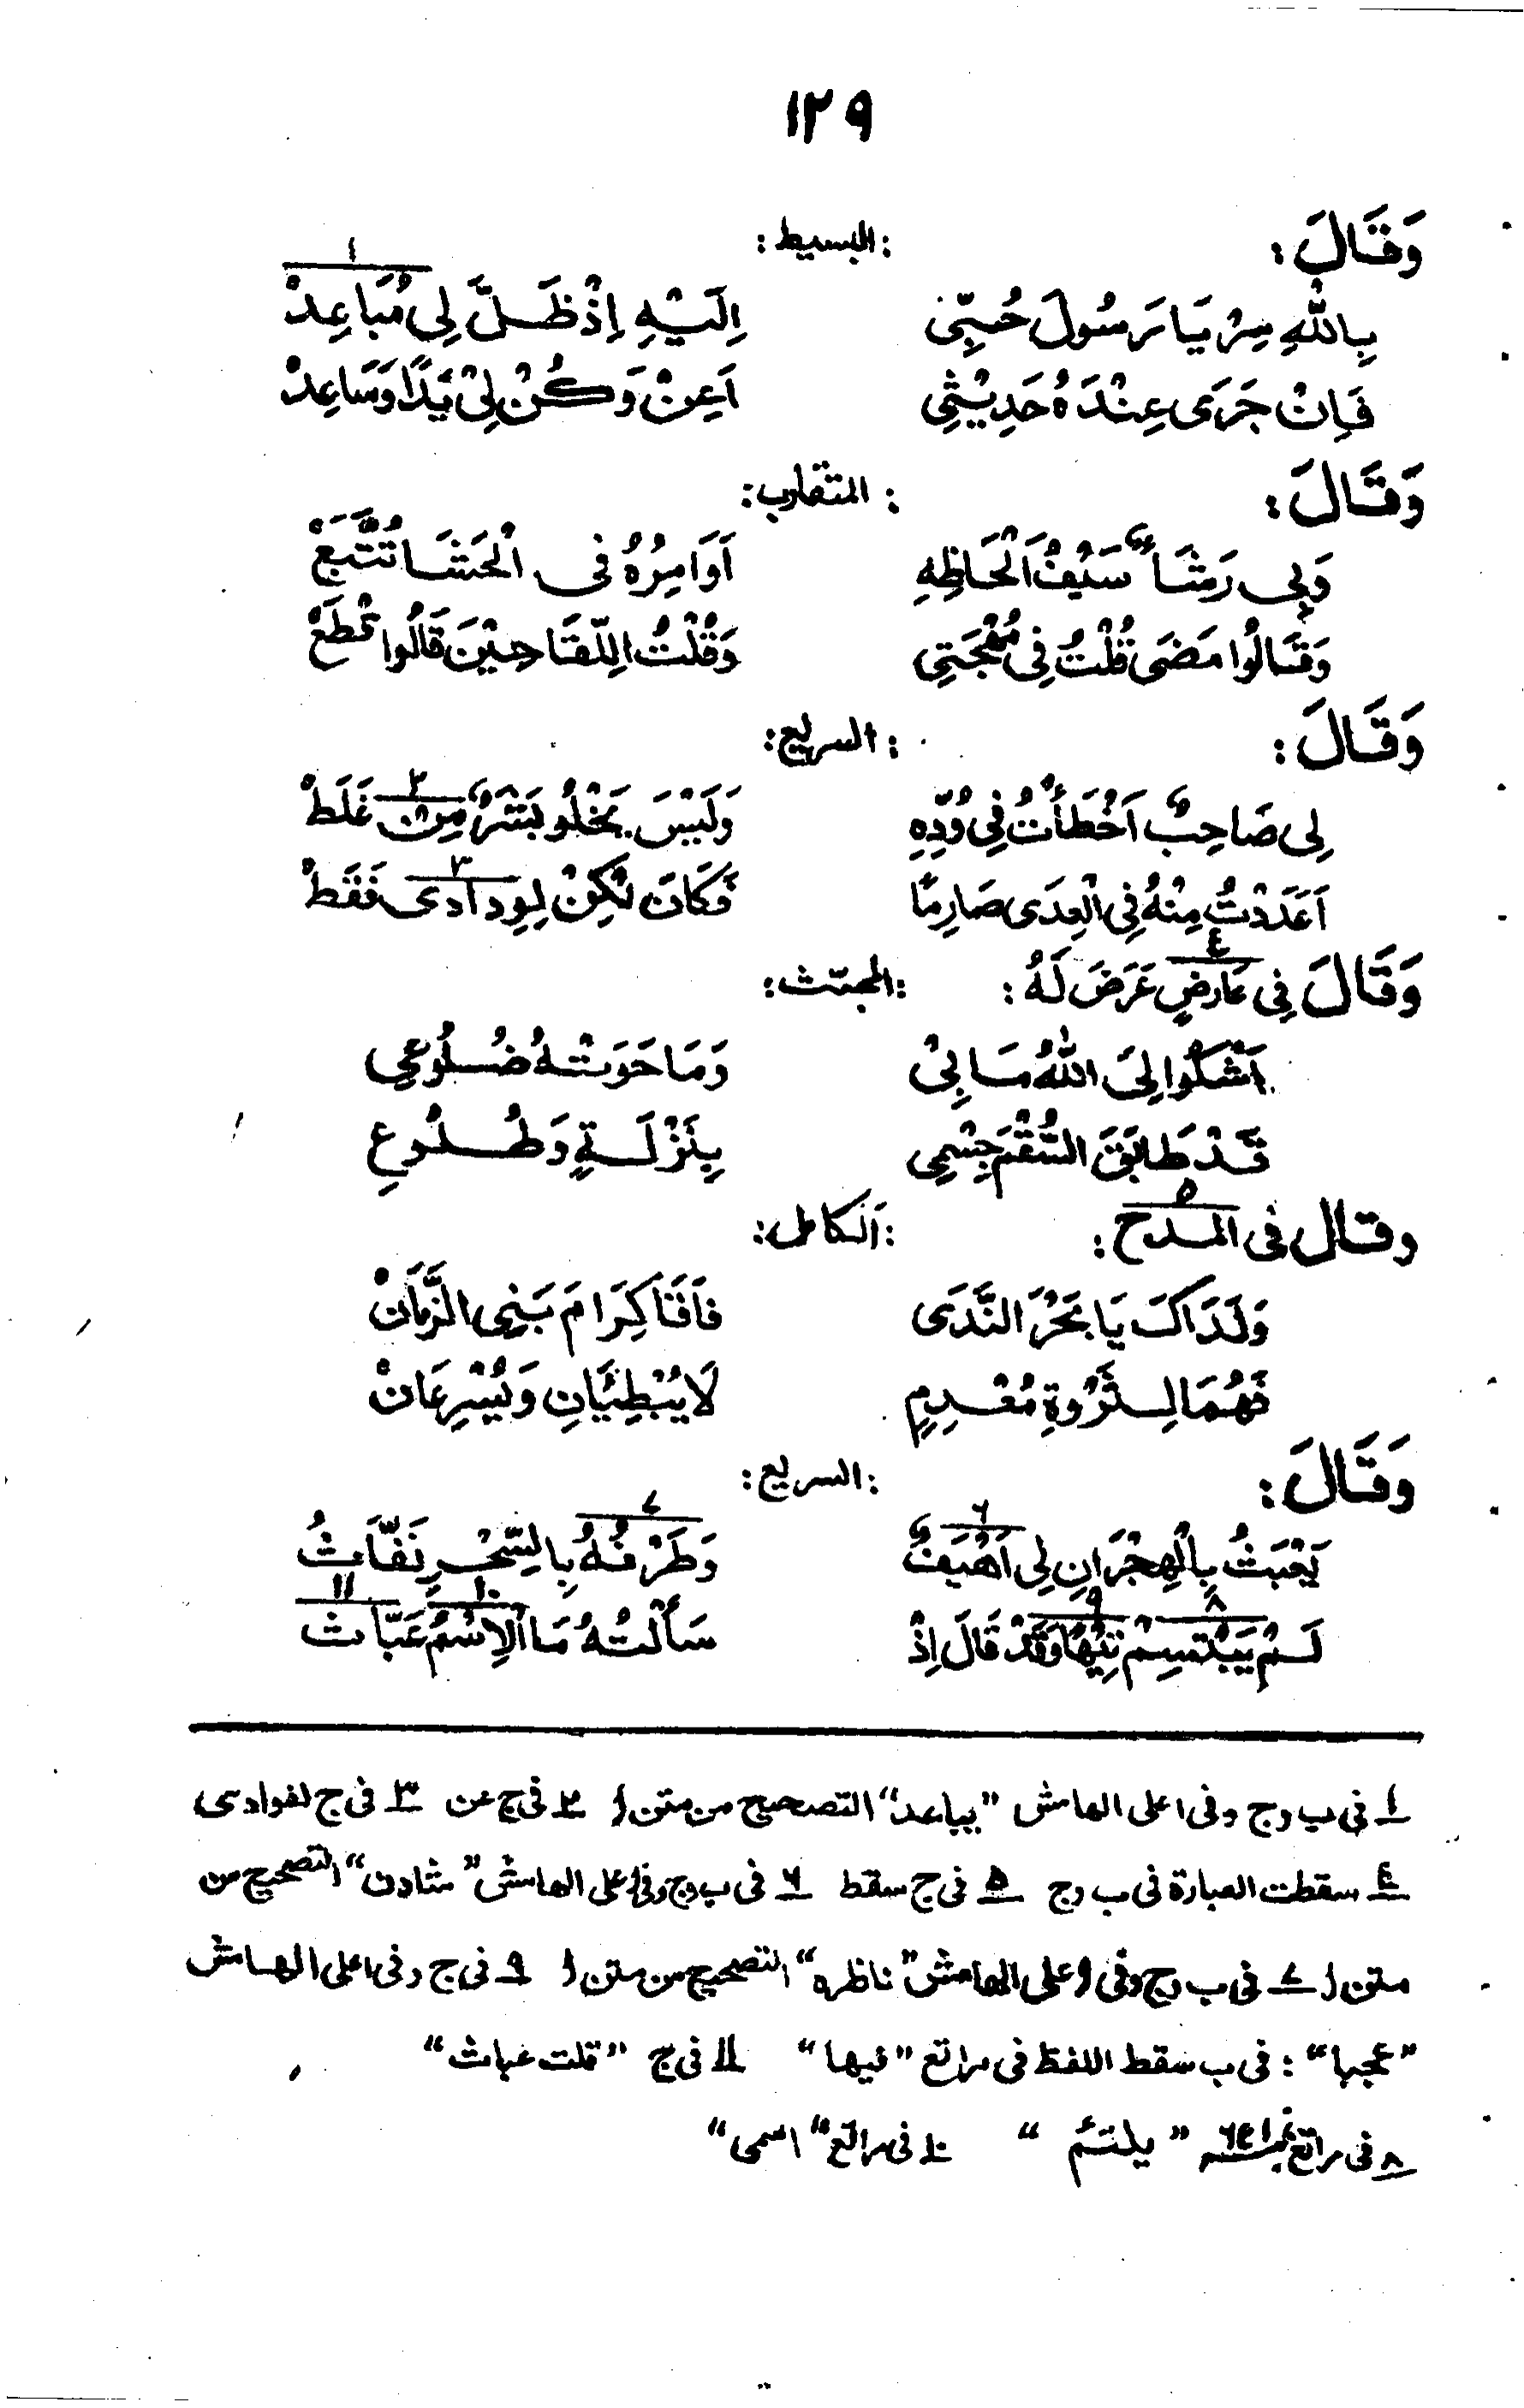 ١٢٩
وَقَالَ : : البسيط :
بِاللهِ سِرْ يَا رَسُولَ حُبِّى اِلَيْهِ اِذْ ظَلَّ لِى مُبَاعِدْ ١
فَاِنْ جَرَى عِنْدَهُ حَدِيْثِى اَعِنْ وَكُنْ لِىْ يَدًا وَسَاعِدْ
وَقَالَ : : المتقارب :
وَبِى رَشَأٌ سَيْفُ اَلْحَاظِهِ اَوَامِرُهُ فى الْحَشَا تُتَّبَعْ
وَقَالُوا مَضَى قُلْتُ فِى مُهْجَتِى وَقُلْتُ اللِّقَا حِيْنَ قَالُوا قطَعْ
وَقَالَ : : السريع :
لِى صَاحِبٌ اَخْطَأْتُ فِى وُدِّهِ وَلَيْسَ يَخْلُو بَشَرٌ مِنْ ٢ غَلَطْ
اَعْدَدْتُ مِنْهُ فِى الْعِدَى صَارِمًا فَكَانَ لٰكِنْ لِوِدَادِى ٣ فَقَطْ
وَقَالَ فِى عَارِضٍ ٤ عَرَضَ لَهُ : : المجتث :
اَشْكُوا لِىَ اللهُ مَا بِىْ وَمَا حَوَتْهُ ضُلُوعِى
قَدْ طَابَقَ السُّقْمَ جِسْمِى بِنَزْلَةٍ وَطُلُوعِ
وقال فى المدح ٥ : : اَلكامل :
وَلَدَاكَ يَا بَحْرَ النَّدَى فَاقَا كِرَامَ بَنِى الزَّمَانْ
فَهُمَا لِثَرْوَةِ مُعْدِمٍ لَا يُبْطِئَانِ وَيُسْرِعَانْ
وَقَالَ : : السريع :
يَعْبَثُ بِالْهِجْرَانِ لِى اَهْيَفٌ ٦ وَطَرْفُهُ ٧ بِالسِّحْرِ نَفَّاثُ
لَمْ يَبْتَسِمْ ٨ تِيْهًا ٩ وَقَدْ قَالَ اِذْ سَأَلْتُهُ مَا اَلْاِسْمُ ١٠ عَبّاث ١١
١ فى ب وج وفى اعلى الهامش "يباعد" التصحيح من متن ا ٢ فى ج عن ٣ فى ج لفوادى
٤ سقطت العبارة فى ب وج ٥ فى ج سقط ٦ فى ب وج وفى اعلى الهامش "شادن" التصحيح من
متن ا ٧ فى ب وج وفى اعلى الهامش "ناظره" التصحيح من متن ا ٩ فى ج وفى اعلى الهامش
"عجبا" : فى ب سقط اللفظ فى مراتع "فيها" ١١ فى ج "قلت عباث"
٨ فى مراتع "يلتئم" ١٠ فى مراتع "اسمى"